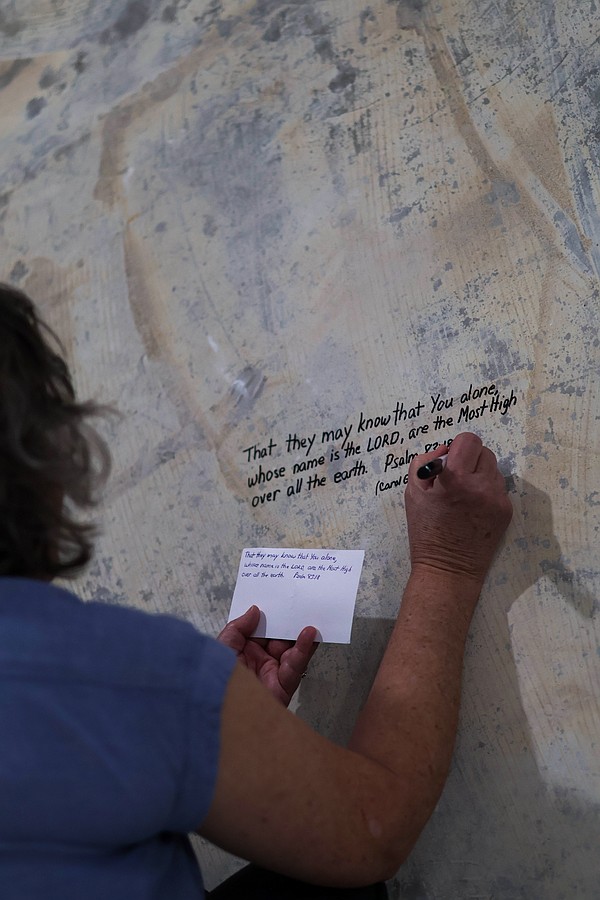 That they may know that You alone,
whose name is the LORD, are the Most High
over all the earth. Psalm 83:18
(Carol
That they may know that You alone,
whose name is the LORD, are the Most High
over all the earth. Psalm 83:18